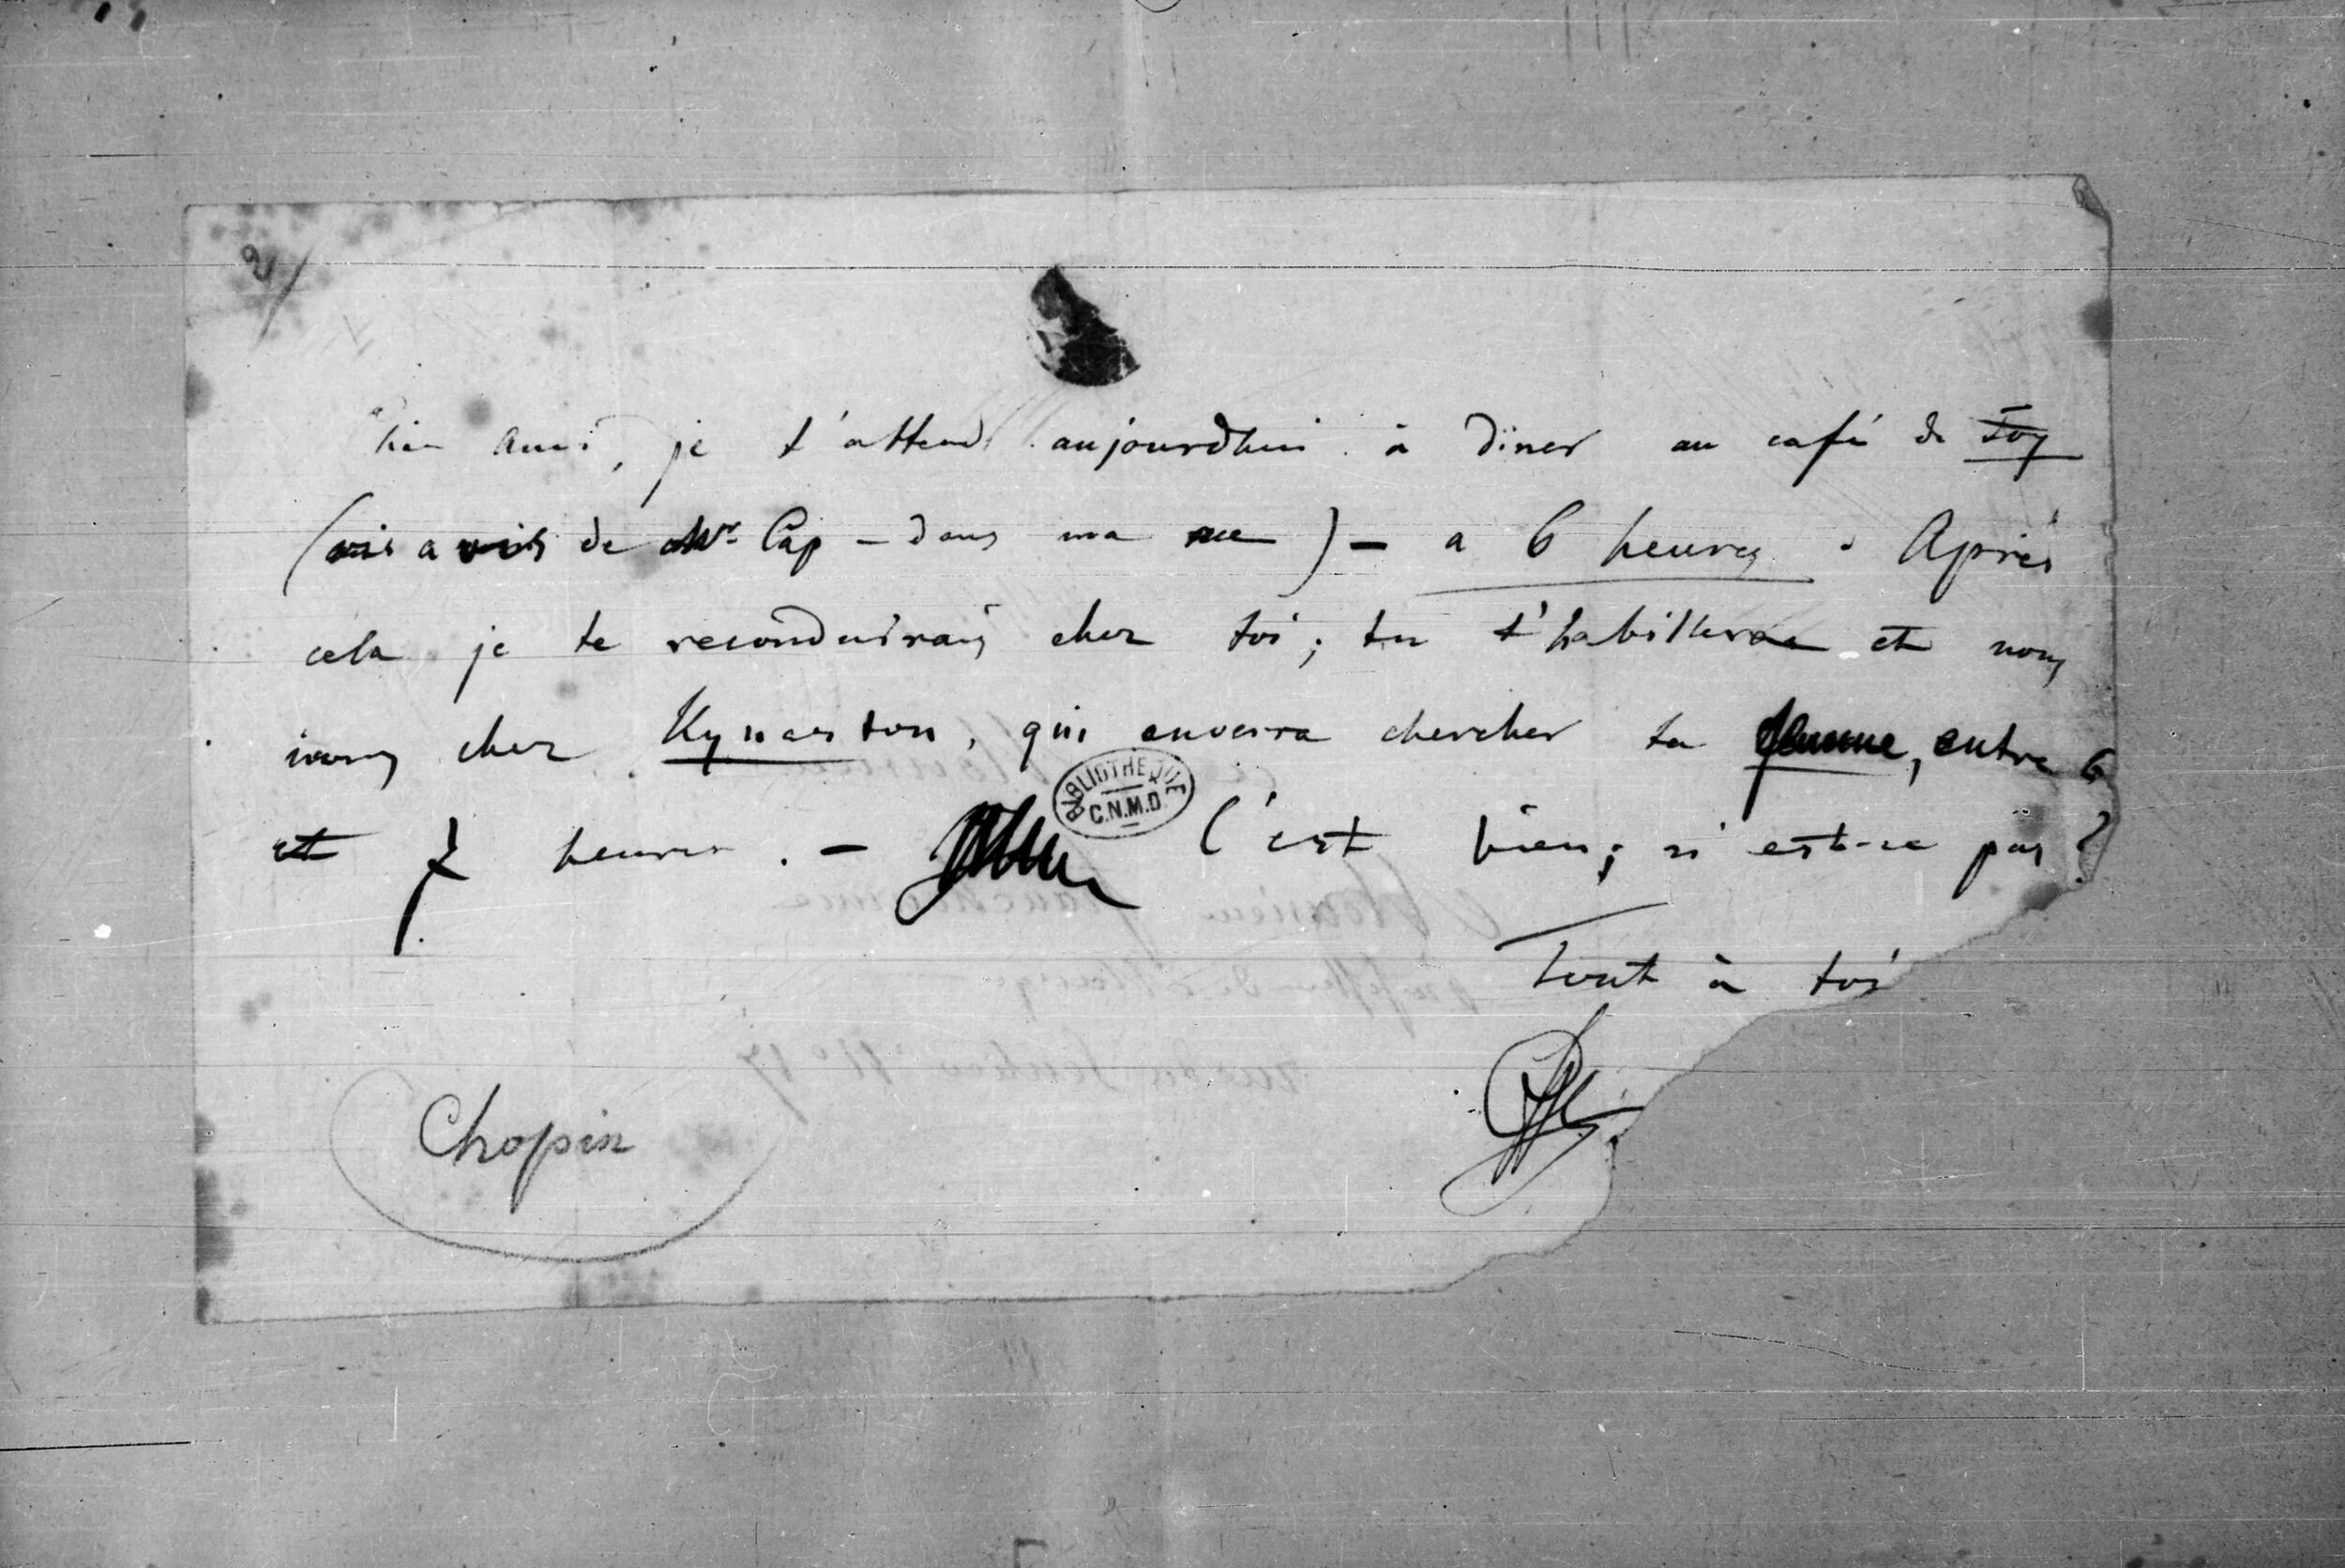 2/
Cher ami, je t'attend aujourdhui à diner au café de Foy
(vis a vis de Mr. Cap – dans ma rue) – a 6 heures. Après
cela je te reconduirais chez toi; tu t'habilleras et nous
irons chez Kynaston, qui enverra chercher ta femme, entre 6
et 7 heures. – C'est bien; n'est-ce pas?
BIBLIOTHEQUE
C.N.M.D.
Tout à toi
Chopin